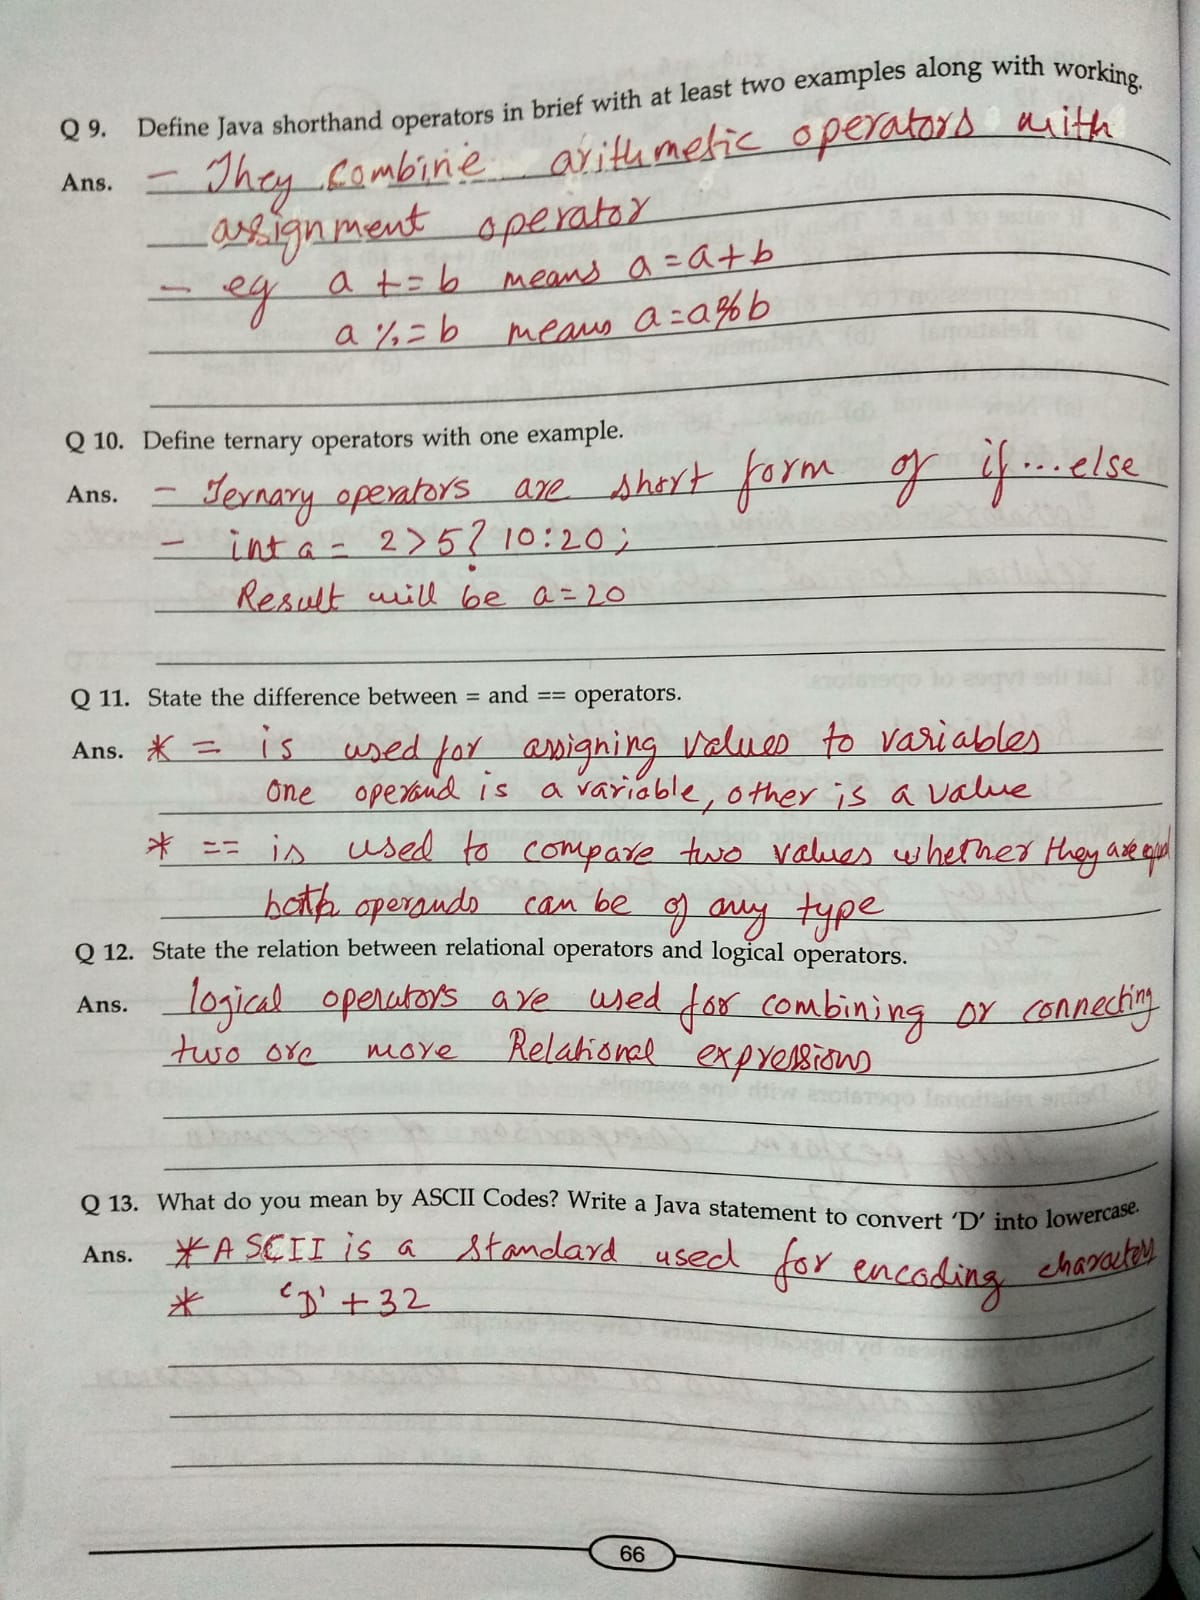 Q 9. Define Java shorthand operators in brief with at least two examples along with working.
Ans. - They combine arithmetic operators with
assignment operator
- eg a += b means a = a + b
a %= b means a = a % b
Q 10. Define ternary operators with one example.
Ans. - Ternary operators are short form of if...else
- int a = 2 > 5 ? 10 : 20 ;
Result will be a = 20
Q 11. State the difference between = and == operators.
Ans. * = is used for assigning values to variables
One operand is a variable, other is a value
* == is used to compare two values whether they are equal
both operands can be of any type
Q 12. State the relation between relational operators and logical operators.
Ans. logical operators are used for combining or connecting
two ore more Relational expressions
Q 13. What do you mean by ASCII Codes? Write a Java statement to convert 'D' into lowercase.
Ans. * ASCII is a standard used for encoding characters
* 'D' + 32
66